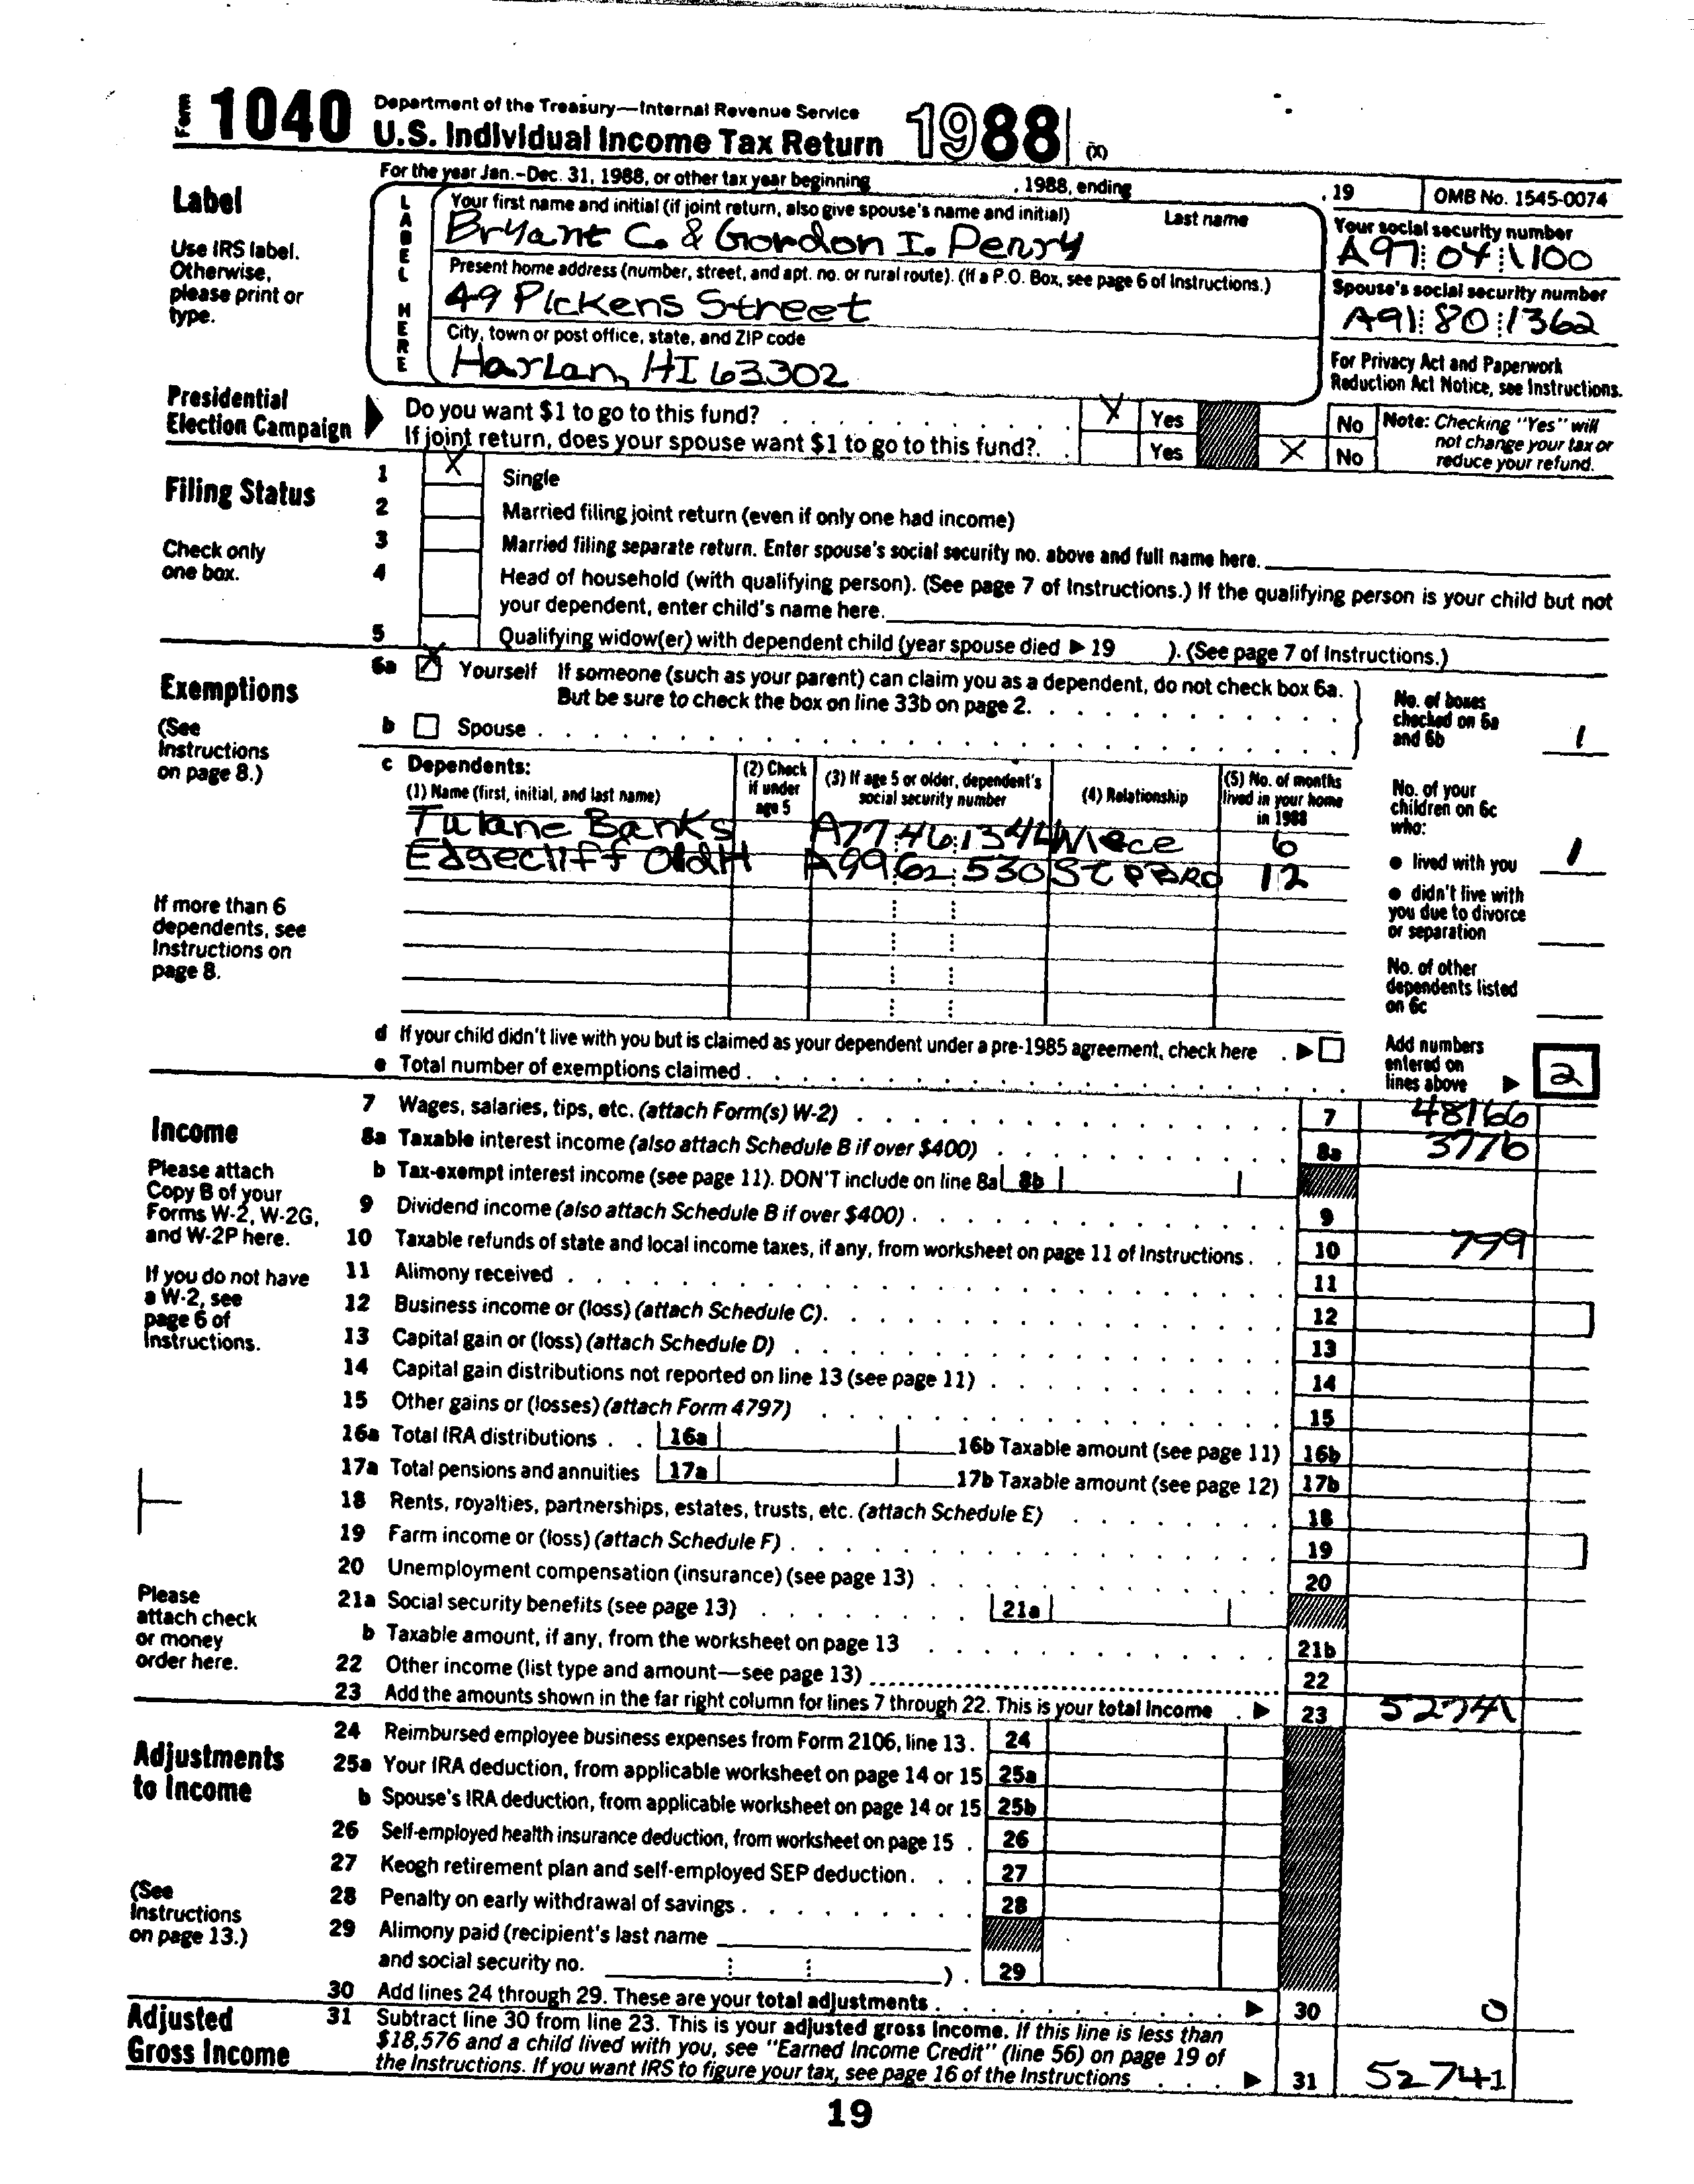 Form 1040 Department of the Treasury—Internal Revenue Service
U.S. Individual Income Tax Return 1988 (X)
For the year Jan.-Dec. 31, 1988, or other tax year beginning , 1988, ending , 19 OMB No. 1545-0074
Label
Use IRS label. Otherwise, please print or type.
LABEL HERE
Your first name and initial (if joint return, also give spouse's name and initial) Last name
Bryant C. & Gordon I. Perry
Your social security number
A97 04 1100
Present home address (number, street, and apt. no. or rural route). (If a P.O. Box, see page 6 of Instructions.)
49 Pickens Street
Spouse's social security number
A91 80 1362
City, town or post office, state, and ZIP code
Harlan, HI 63302
For Privacy Act and Paperwork Reduction Act Notice, see Instructions.
Presidential Election Campaign
Do you want $1 to go to this fund? X Yes No
If joint return, does your spouse want $1 to go to this fund?. Yes X No
Note: Checking "Yes" will not change your tax or reduce your refund.
Filing Status
Check only one box.
1 X Single
2 Married filing joint return (even if only one had income)
3 Married filing separate return. Enter spouse's social security no. above and full name here.
4 Head of household (with qualifying person). (See page 7 of Instructions.) If the qualifying person is your child but not
your dependent, enter child's name here.
5 Qualifying widow(er) with dependent child (year spouse died ▶ 19 ). (See page 7 of Instructions.)
Exemptions
(See Instructions on page 8.)
6a X Yourself If someone (such as your parent) can claim you as a dependent, do not check box 6a.
But be sure to check the box on line 33b on page 2.
b Spouse
No. of boxes checked on 6a and 6b 1
c Dependents:
(1) Name (first, initial, and last name) (2) Check if under age 5 (3) If age 5 or older, dependent's social security number (4) Relationship (5) No. of months lived in your home in 1988
Tulane Banks A77 46 1344 Niece 6
Edgecliff OldH A99 62 530 StPBRO 12
No. of your children on 6c who:
● lived with you 1
● didn't live with you due to divorce or separation
No. of other dependents listed on 6c
If more than 6 dependents, see Instructions on page 8.
d If your child didn't live with you but is claimed as your dependent under a pre-1985 agreement, check here . ▶
e Total number of exemptions claimed
Add numbers entered on lines above ▶ 2
Income
Please attach Copy B of your Forms W-2, W-2G, and W-2P here.
If you do not have a W-2, see page 6 of Instructions.
Please attach check or money order here.
7 Wages, salaries, tips, etc. (attach Form(s) W-2) 7 48166
8a Taxable interest income (also attach Schedule B if over $400) 8a 3776
b Tax-exempt interest income (see page 11). DON'T include on line 8a 8b
9 Dividend income (also attach Schedule B if over $400) 9
10 Taxable refunds of state and local income taxes, if any, from worksheet on page 11 of Instructions 10 799
11 Alimony received 11
12 Business income or (loss) (attach Schedule C). 12
13 Capital gain or (loss) (attach Schedule D) 13
14 Capital gain distributions not reported on line 13 (see page 11) 14
15 Other gains or (losses) (attach Form 4797) 15
16a Total IRA distributions 16a 16b Taxable amount (see page 11) 16b
17a Total pensions and annuities 17a 17b Taxable amount (see page 12) 17b
18 Rents, royalties, partnerships, estates, trusts, etc. (attach Schedule E) 18
19 Farm income or (loss) (attach Schedule F) 19
20 Unemployment compensation (insurance) (see page 13) 20
21a Social security benefits (see page 13) 21a
b Taxable amount, if any, from the worksheet on page 13 21b
22 Other income (list type and amount—see page 13) 22
23 Add the amounts shown in the far right column for lines 7 through 22. This is your total income ▶ 23 52741
Adjustments to Income
(See Instructions on page 13.)
24 Reimbursed employee business expenses from Form 2106, line 13. 24
25a Your IRA deduction, from applicable worksheet on page 14 or 15 25a
b Spouse's IRA deduction, from applicable worksheet on page 14 or 15 25b
26 Self-employed health insurance deduction, from worksheet on page 15 26
27 Keogh retirement plan and self-employed SEP deduction 27
28 Penalty on early withdrawal of savings 28
29 Alimony paid (recipient's last name
and social security no. ). 29
30 Add lines 24 through 29. These are your total adjustments ▶ 30 0
Adjusted Gross Income
31 Subtract line 30 from line 23. This is your adjusted gross income. If this line is less than
$18,576 and a child lived with you, see "Earned Income Credit" (line 56) on page 19 of
the Instructions. If you want IRS to figure your tax, see page 16 of the Instructions ▶ 31 52741
19